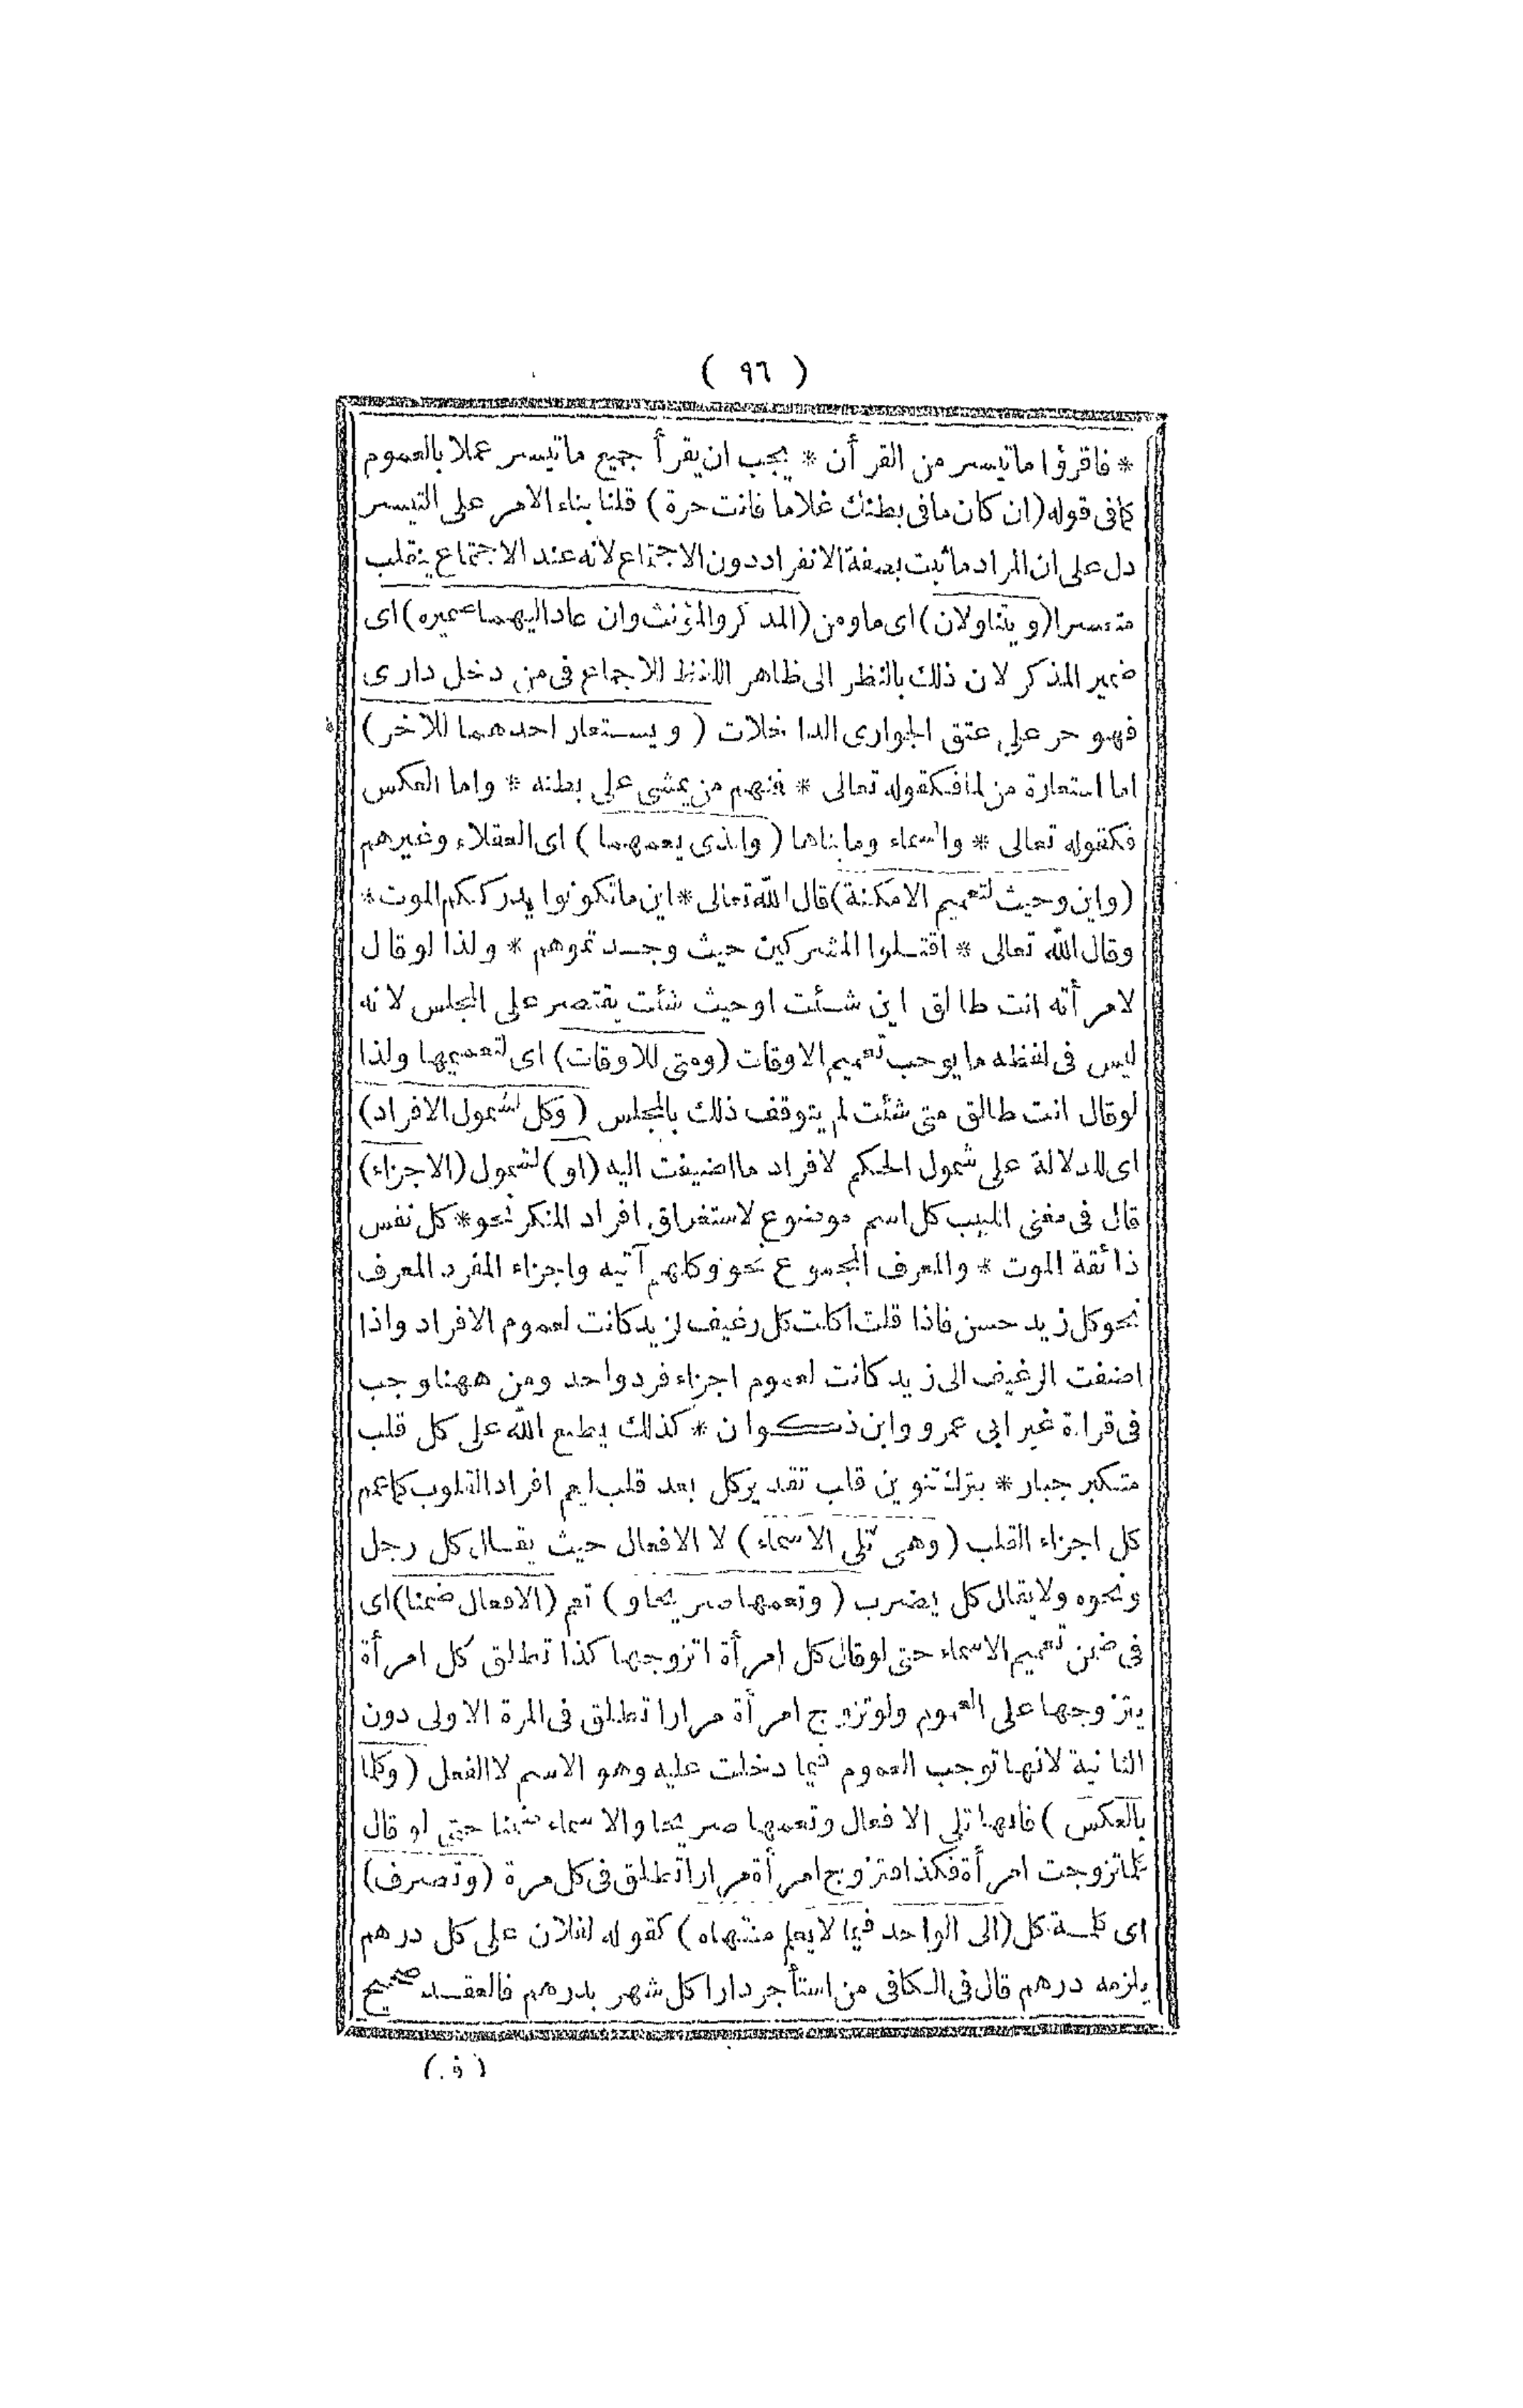 ( ٩٦ )
* فاقرؤا ماتيسر من القرأن * يجب ان يقرأ جميع ماتيسر عملا بالعموم
كمافى قوله (ان كان مافى بطنك غلاما فانت حرة ) قلنا بناء الامر على التيسر
دل على ان المراد ماثبت بصفة الانفراد دون الاجتماع لانه عند الاجتماع ينقلب
متعسرا (ويتناولان) اى ماومن (المذكر والمؤنث وان عاد اليهما ضميره) اى
ضمير المذكر لان ذلك بالنظر الى ظاهر اللفظ للاجماع فى من دخل دارى
فهو حر على عتق الجوارى الداخلات ( ويستعار احدهما للآخر )
اما استعارة من لما فكقوله تعالى * فمنهم من يمشى على بطنه * واما العكس
فكقوله تعالى * والسماء ومابناها ( والذى يعمهما ) اى العقلاء وغيرهم
(واين وحيث لتعميم الامكنة) قال الله تعالى * اين ماتكونوا يدرككم الموت *
وقال الله تعالى * اقتلوا المشركين حيث وجدتموهم * ولذا لو قال
لامرأته انت طالق اين شئت او حيث شئت يقتصر على المجلس لانه
ليس فى لفظه ما يوجب تعميم الاوقات (ومتى للاوقات) اى لتعميمها ولذا
لوقال انت طالق متى شئت لم يتوقف ذلك بالمجلس ( وكل لشمول الافراد)
اى للدلالة على شمول الحكم لافراد مااضيفت اليه (او) لشمول (الاجزاء)
قال فى مغنى اللبيب كل اسم موضوع لاستغراق افراد المنكر نحو * كل نفس
ذائقة الموت * والمعرف المجموع نحو وكلهم آتيه واجزاء المفرد المعرف
نحو كل زيد حسن فاذا قلت اكلت كل رغيف لزيد كانت لعموم الافراد واذا
اضفت الرغيف الى زيد كانت لعموم اجزاء فرد واحد ومن ههنا وجب
فى قراءة غير ابى عمرو وابن ذكوان * كذلك يطبع الله على كل قلب
متكبر جبار * بترك تنوين قلب تقدير كل بعد قلب ليعم افراد القلوب كماعم
كل اجزاء القلب (وهى تلى الاسماء ) لا الافعال حيث يقال كل رجل
ونحوه ولا يقال كل يضرب ( وتعمها صريحا و ) تعم (الافعال ضمنا) اى
فى ضمن تعميم الاسماء حتى لوقال كل امرأة اتزوجها كذا تطلق كل امرأة
يتزوجها على العموم ولو تزوج امرأة مرارا تطلق فى المرة الاولى دون
الثانية لانها توجب العموم فيما دخلت عليه وهو الاسم لا الفعل ( وكلما
بالعكس ) فانها تلى الافعال وتعمها صريحا والاسماء ضمنا حتى لو قال
كلما تزوجت امرأة فكذا فتزوج امرأة مرارا تطلق فى كل مرة (وتصرف)
اى كلمة كل (الى الواحد فيما لا يعلم منتهاه ) كقوله لفلان على كل درهم
يلزمه درهم قال فى الكافى من استأجر دارا كل شهر بدرهم فالعقد صحيح